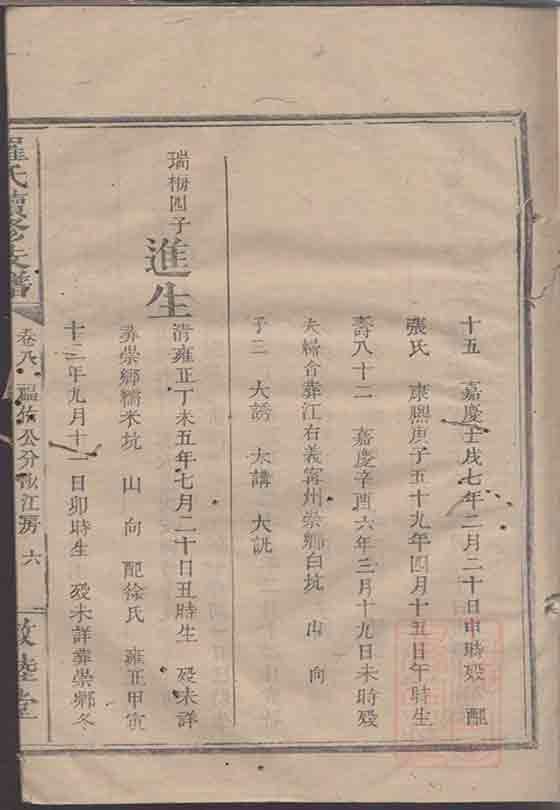 十五 嘉慶壬戌七年二月二十日申時歿 配
張氏 康熙庚子五十九年四月十五日午時生
壽八十二 嘉慶辛酉六年三月十九日未時歿
夫婦合葬江右義寧州崇鄉白坑 山 向
子三 大誘 大講 大訛
瑞梅四子
進生
清雍正丁未五年七月二十日丑時生 歿未詳
葬崇鄉糯米坑 山 向 配徐氏 雍正甲寅
十二年九月十一日卯時生 歿未詳葬崇鄉冬
羅氏續修支譜
卷八 福佑公分 江房 六
敦睦堂